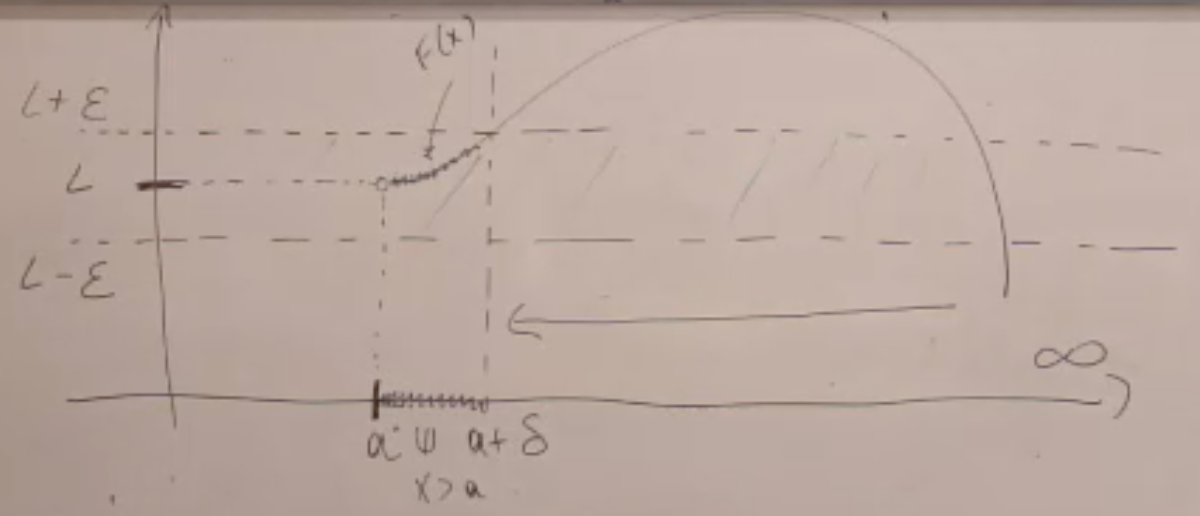 F(x)
L+ε
L
L-ε
∞
a ψ a+δ
x>a